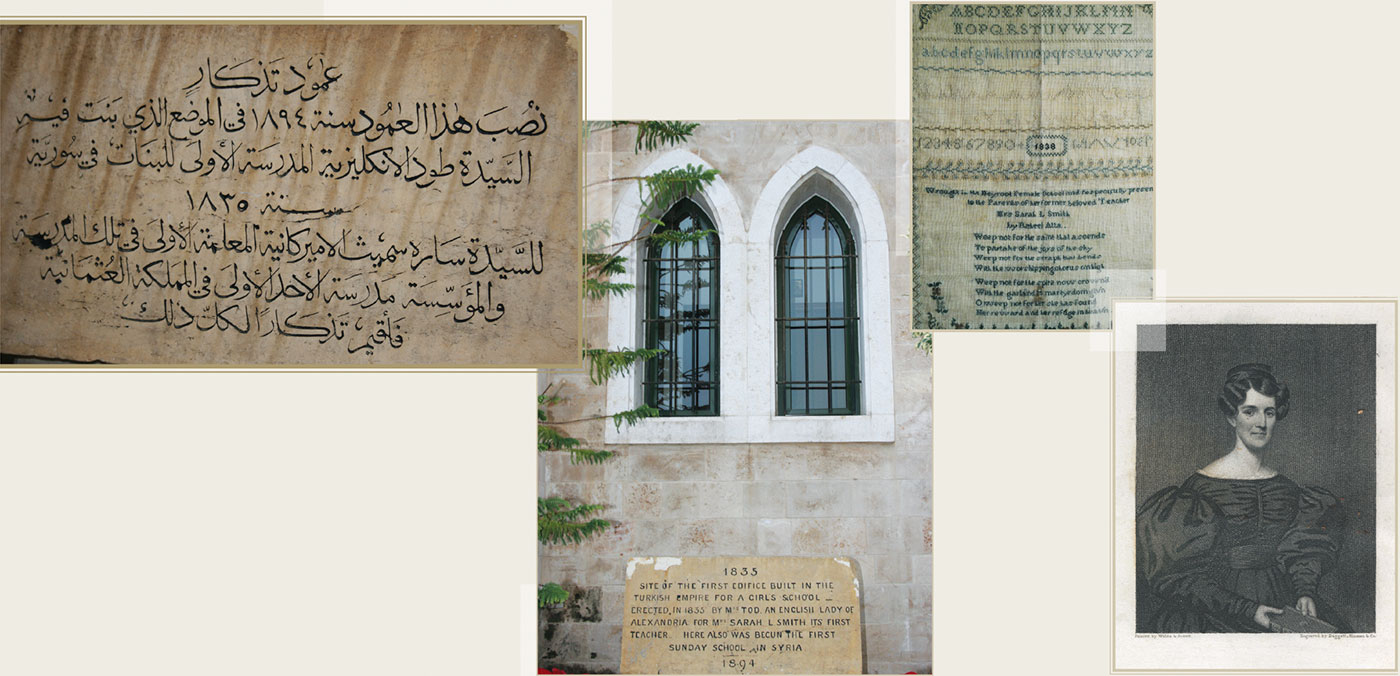 عمود تذكار
نُصِبَ هٰذا العَمُود سنة ١٨٩٤ في الموضع الذي بَنَت فيهِ
السَّيّدة طود الانكليزية المدرسة الأولى للبنات في سُوريَّة
سنة ١٨٣٥
للسَّيّدة ساره سميث الاميركانية المعلمة الأولى في تلك المدرسة
والمؤسِّسة مَدرَسة الأحد الأولى في المملكة العُثمانيَّة
فأُقيم تذكارًا لكلّ ذلك
1835
SITE OF THE FIRST EDIFICE BUILT IN THE
TURKISH EMPIRE FOR A GIRLS SCHOOL —
ERECTED, IN 1835 BY MRS TOD, AN ENGLISH LADY OF
ALEXANDRIA FOR MRS SARAH L SMITH ITS FIRST
TEACHER. HERE ALSO WAS BEGUN THE FIRST
SUNDAY SCHOOL IN SYRIA
1894
ABCDEFGHIJKLMN
OPQRSTUVWXYZ
abcdefghiklmnopqrstuvwxyz
1234567890
1838
Wrought in the Beyroot Female School and respectfully presen
to the Parents of her former beloved Teacher
Mrs Sarah L Smith
by Raheel Atta
Weep not for the saint that ascends
To partake of the joys of the sky
Weep not for the seraph that bends
With the worshipping chorus on high
Weep not for the spirit now crowned
With the garland
O weep not for her
Her reward and her refuge
Engraved by Daggett, Hinman & Co.